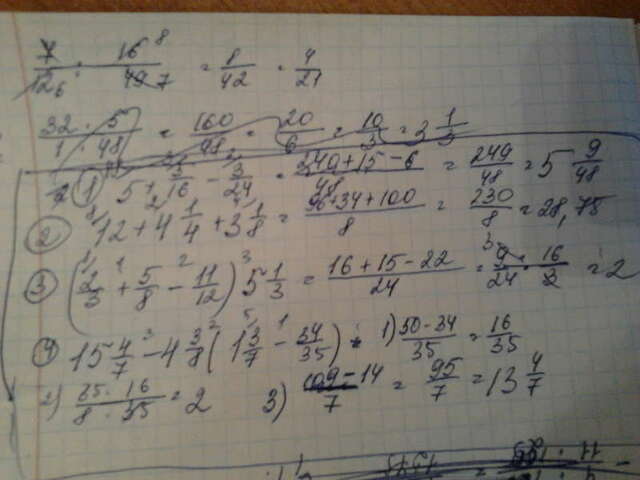 7/12 · 16/49 = 8/42 = 4/21
32 · 5/1 · 48 = 160/48 = 20/6 = 10/3 = 3 1/3
1) 5 + 5/16 - 3/24 = 240+15-6/48 = 249/48 = 5 9/48
2) 12 + 4 1/4 + 3 1/8 = 96+34+100/8 = 230/8 = 28,75
3) (2/3 + 5/8 - 11/12) 5 1/3 = 16+15-22/24 = 9/24 · 16/3 = 2
4) 15 4/7 - 4 3/8 (1 3/7 - 34/35) = 1) 50-34/35 = 16/35
2) 35 · 16/8 · 35 = 2 3) 109-14/7 = 95/7 = 13 4/7